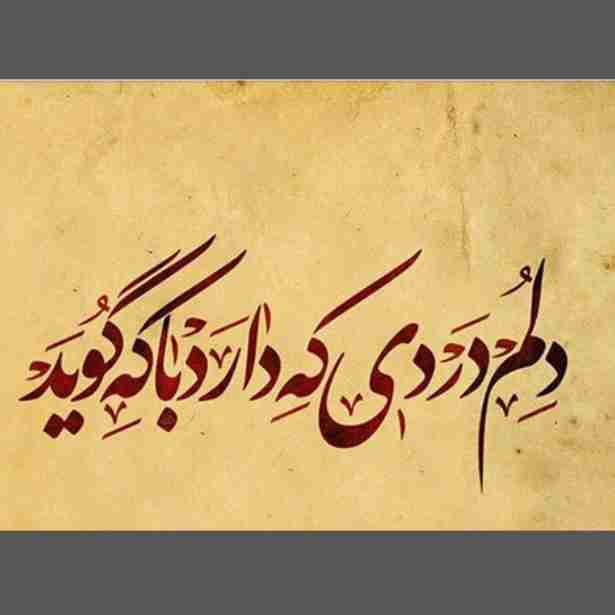 دلُم دَردی که دارَد با که گُویَد